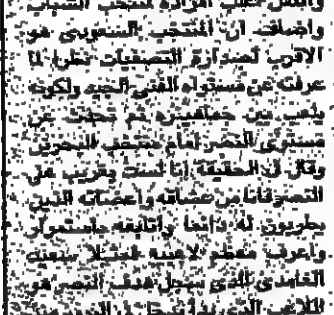 واضاف ان المنتخب السعودي هو
الاقرب لصدارة التصفيات نظرا لما
عرفته عن مستواه الفني الجيد ولكونه
يلعب بين جماهيره ثم تحدث عن
مستوى النصر امام منتخب البحرين
وقال في الحقيقة انا لست بغريب على
النصر فانا من عشاقه واعضائه الذين
يطربون له دائما واتابعه باستمرار
واعرف معظم لاعبيه فمثلا سعيد
الغامدي الذي سجل هدف النصر هو
اللاعب الذي